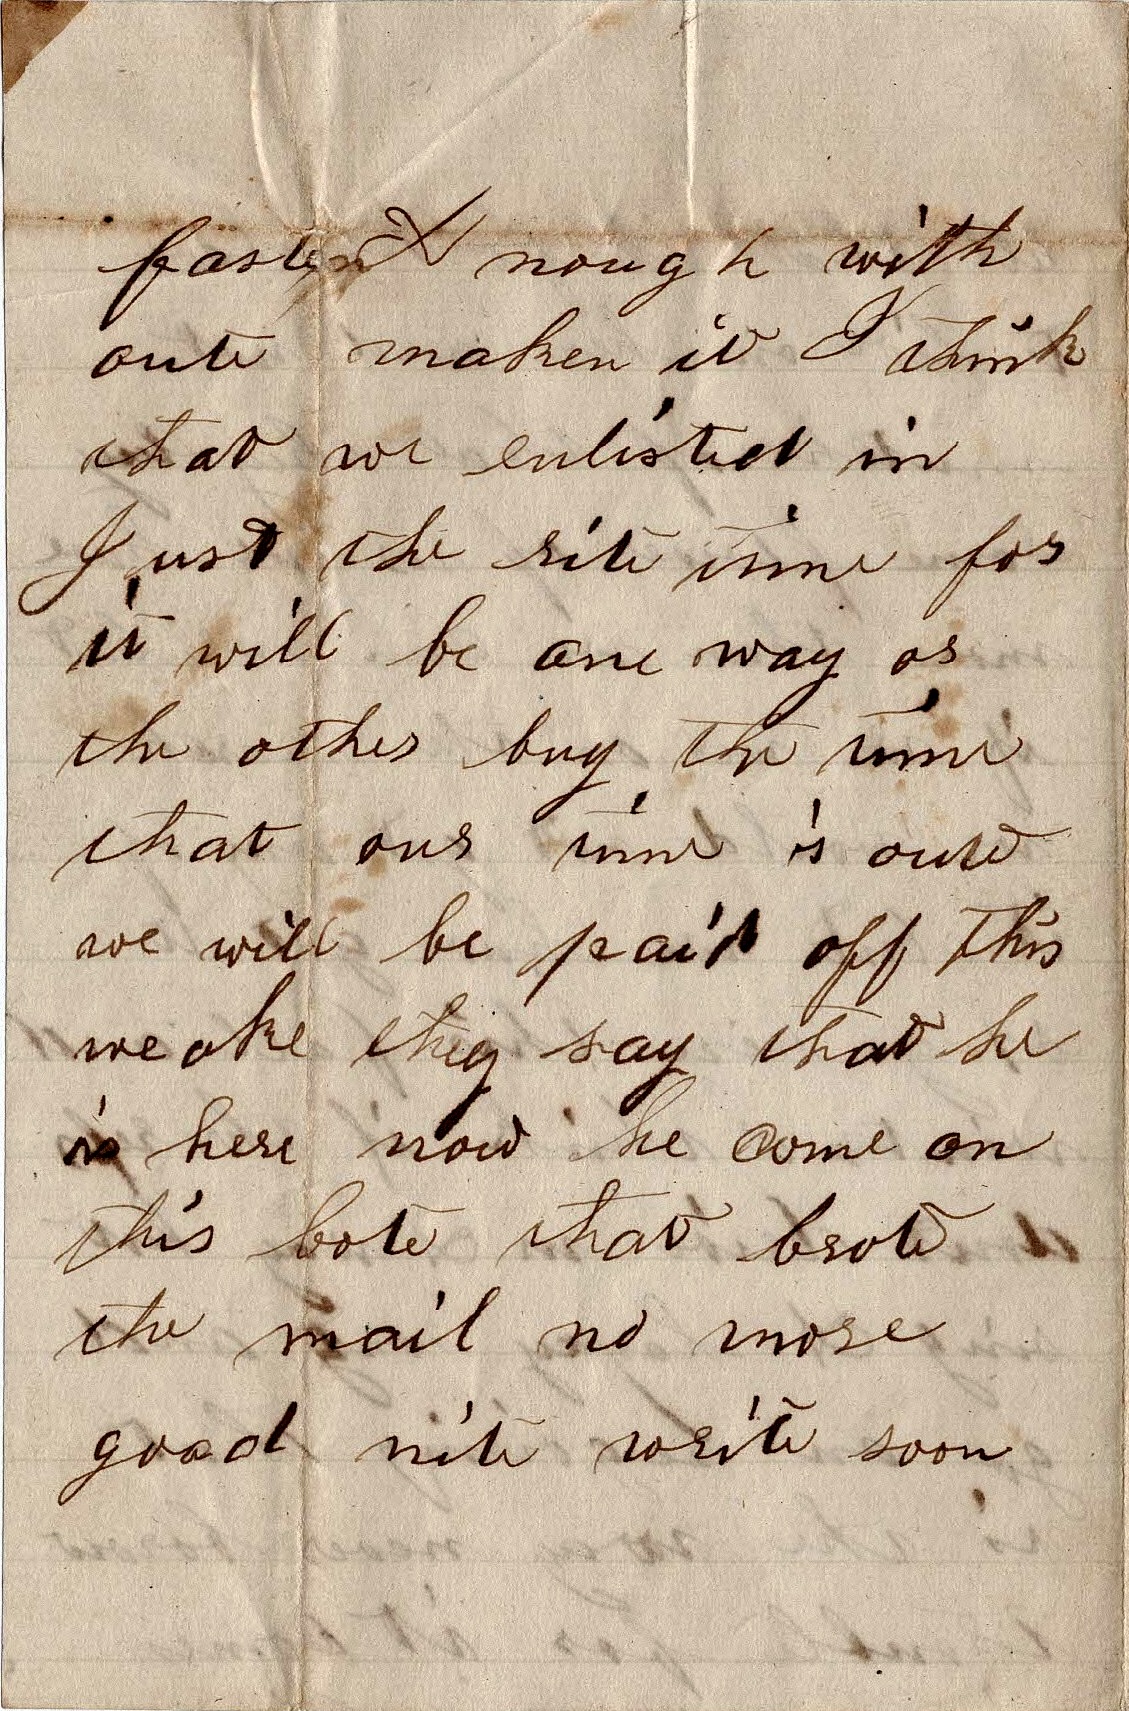 fast nough with
oute maken it I think
that we enlisted in
Just the rite time for
it will be one way or
the other buy the time
that our time is oute
we will be paid off this
weake they say that he
is here now he come on
this bote that brote
the mail no more
good nite write soon